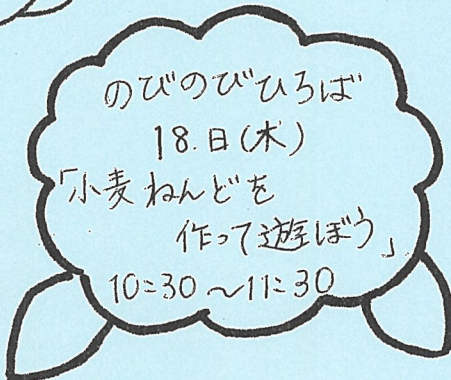 のびのびひろば
18.日(木)
「小麦ねんどを
作って遊ぼう」
10:30〜11:30